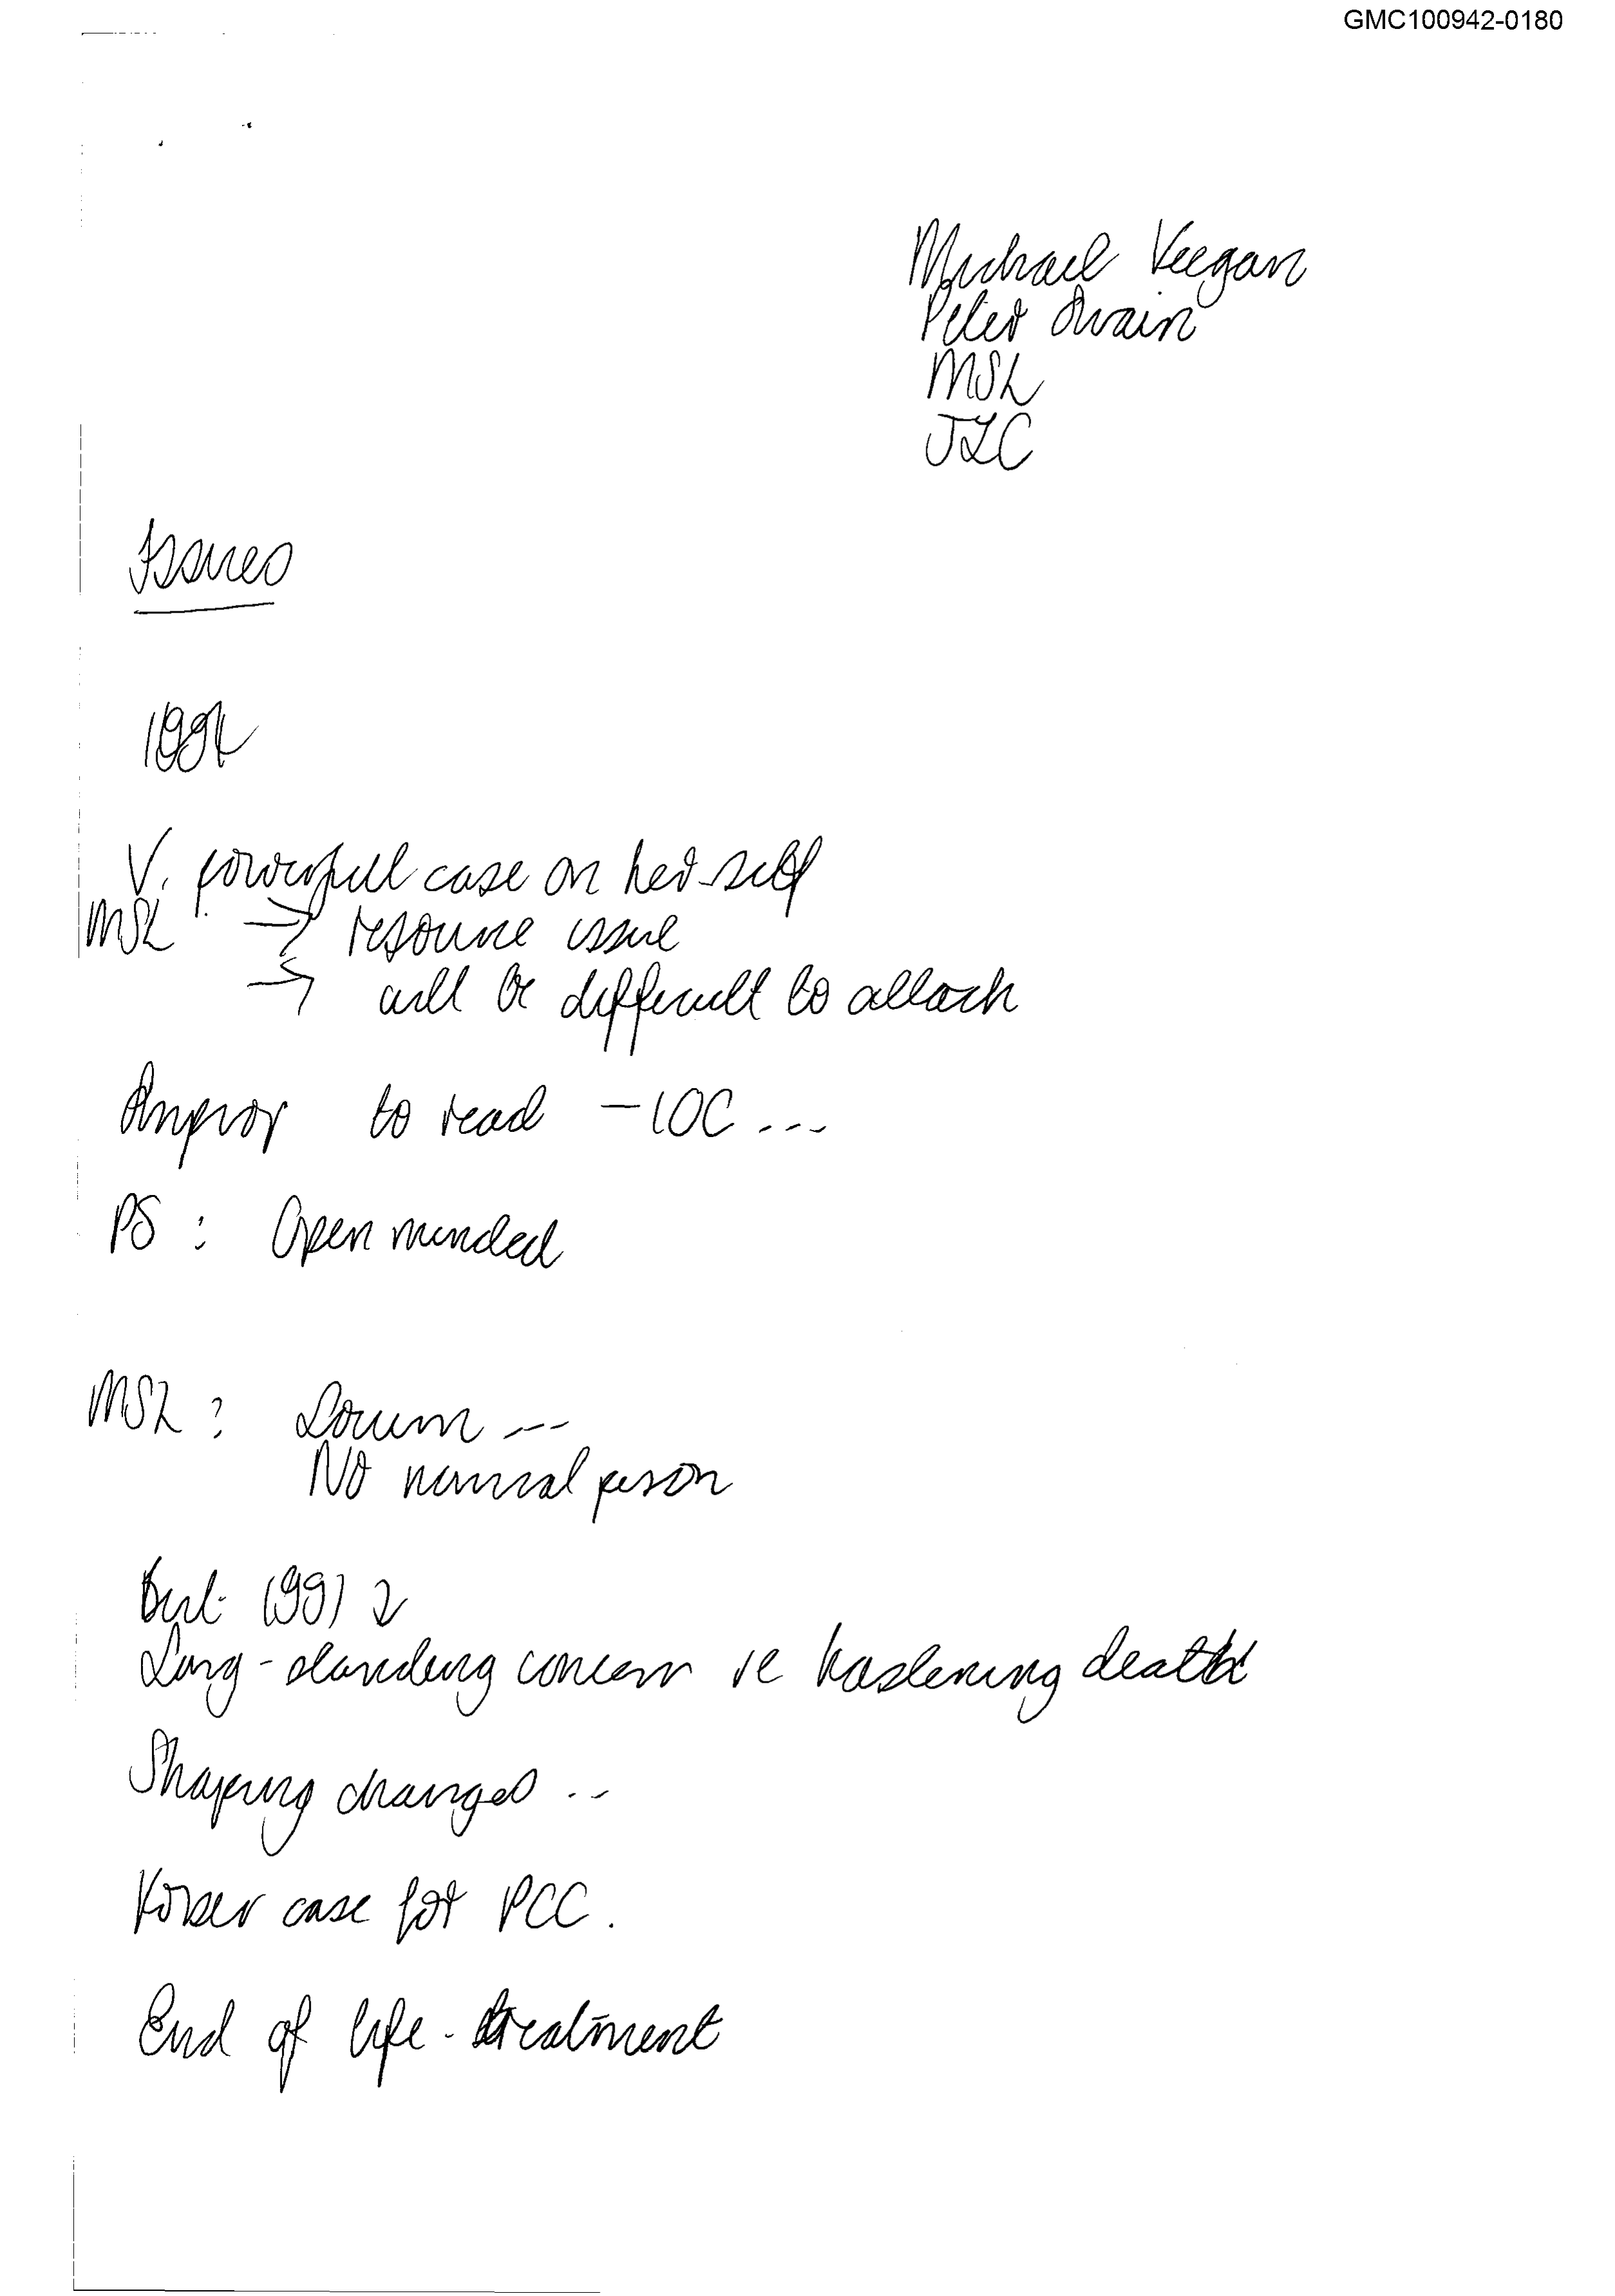 GMC100942-0180
Michael Keegan
Peter Swain
MSL
JZC
Issues
1991
V. powerful case on her self
MSL → resource issue
→ will be difficult to attack
to read - IOC ...
PS : Open minded
MSL : Locum ---
No normal person
But 1991 2
Long-standing concern re hastening death
Shaping changes ..
case for PCC.
End of life - treatment